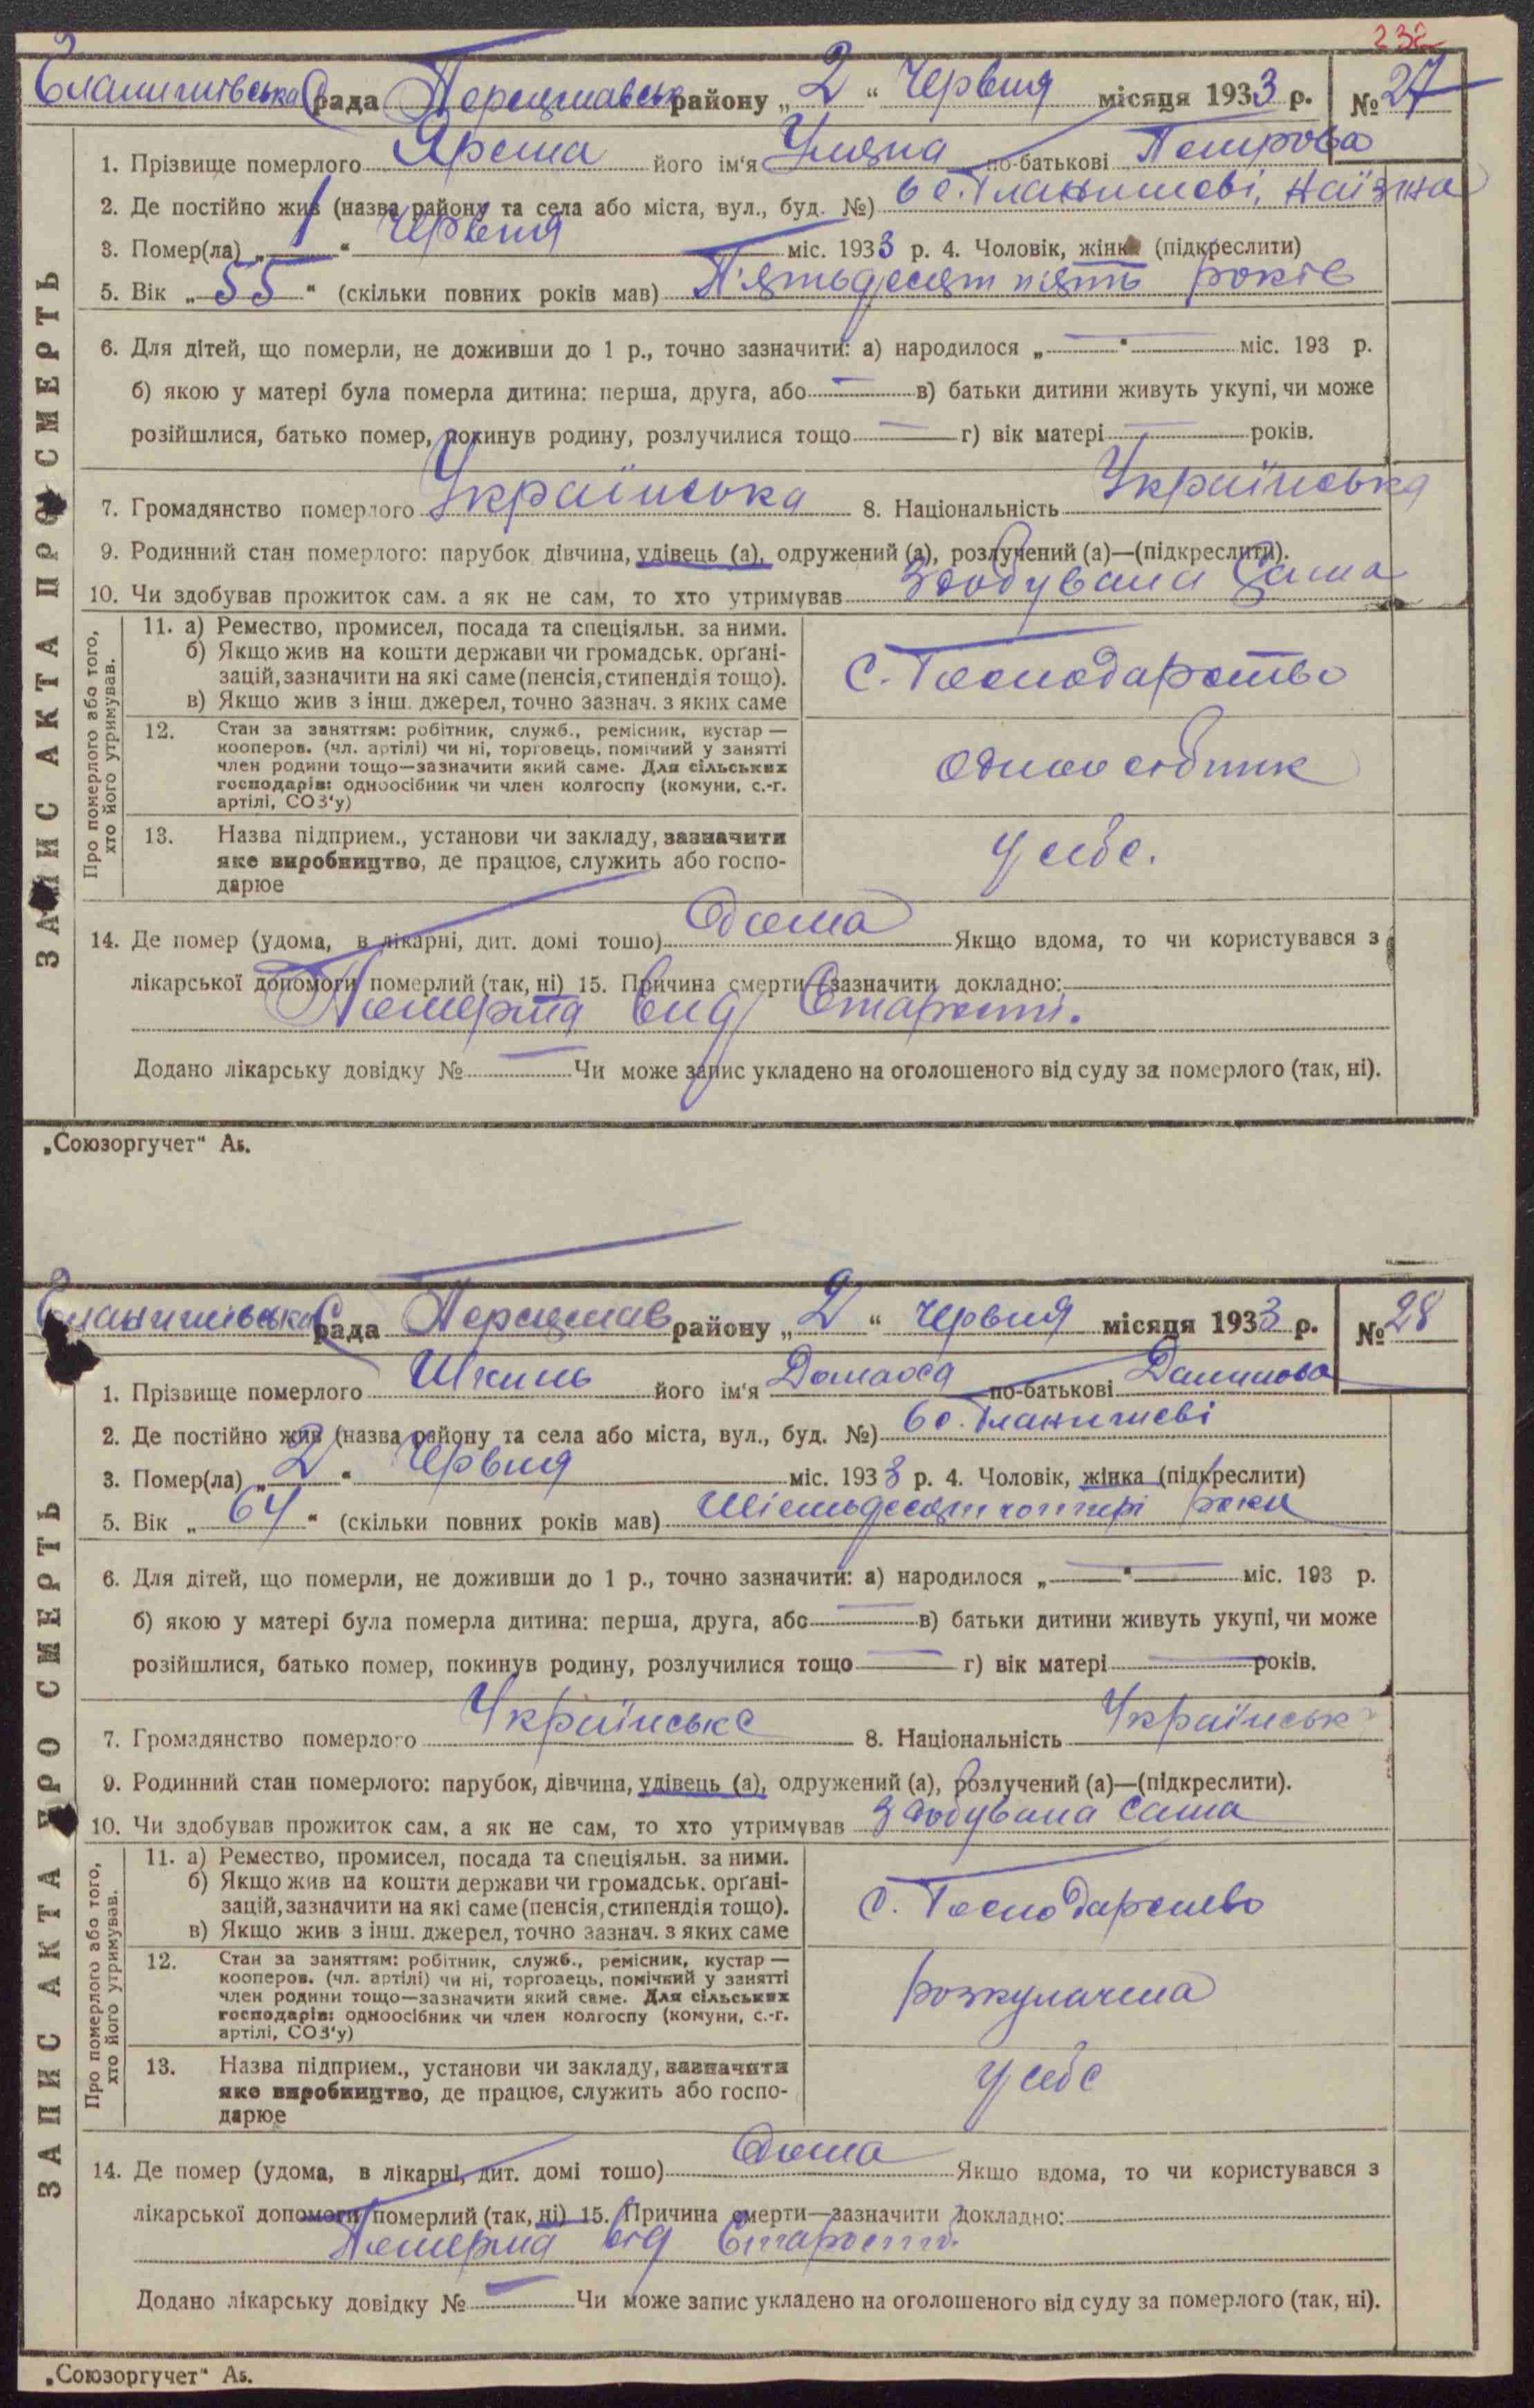 232
рада Переяславськ району „ 2 “ Червня місяця 1933 р. № 27
ЗАПИС АКТА ПРО СМЕРТЬ
1. Прізвище померлого Ярема його ім'я Уляна по-батькові Петрова
2. Де постійно жив (назва району та села або міста, вул., буд. №) в с. Гланишеві,
3. Помер(ла) „ 1 “ Червня міс. 1933 р. 4. Чоловік, жінка (підкреслити)
5. Вік „ 55 “ (скільки повних років мав) П'ятьдесят п'ять років
6. Для дітей, що померли, не доживши до 1 р., точно зазначити: а) народилося „ — “ — міс. 193 р.
б) якою у матері була померла дитина: перша, друга, або — в) батьки дитини живуть укупі, чи може
розійшлися, батько помер, покинув родину, розлучилися тощо — г) вік матері — років.
7. Громадянство померлого Українська 8. Національність Українська
9. Родинний стан померлого: парубок дівчина, удівець (а), одружений (а), розлучений (а)—(підкреслити).
10. Чи здобував прожиток сам. а як не сам, то хто утримував Здобувала Сама
Про померлого або того, хто його утримував.
11. а) Ремество, промисел, посада та спеціяльн. за ними.
б) Якщо жив на кошти держави чи громадськ. орґані-
зацій, зазначити на які саме (пенсія, стипендія тощо).
в) Якщо жив з інш. джерел, точно зазнач. з яких саме
С. Господарство
12. Стан за заняттям: робітник, служб., ремісник, кустар —
кооперов. (чл. артілі) чи ні, торговець, помічний у занятті
член родини тощо—зазначити який саме. Для сільських
господарів: одноосібник чи член колгоспу (комуни, с.-г.
артілі, СОЗ'у)
одноосібник
13. Назва підприєм., установи чи закладу, зазначити
яке виробництво, де працює, служить або госпо-
дарює
у себе.
14. Де помер (удома, в лікарні, дит. домі тощо) Дома Якщо вдома, то чи користувався з
лікарської допомоги померлий (так, ні) 15. Причина смерти—зазначити докладно:
Померла від Старости.
Додано лікарську довідку № — Чи може запис укладено на оголошеного від суду за померлого (так, ні).
„Союзоргучет“ А5.
рада Переяслав району „ 2 “ червня місяця 1933 р. № 28
ЗАПИС АКТА ПРО СМЕРТЬ
1. Прізвище померлого його ім'я Домаха по-батькові Данилова
2. Де постійно жив (назва району та села або міста, вул., буд. №) в с. Гланишеві
3. Помер(ла) „ 2 “ Червня міс. 1933 р. 4. Чоловік, жінка (підкреслити)
5. Вік „ 64 “ (скільки повних років мав) Шістьдесят чотирі роки
6. Для дітей, що померли, не доживши до 1 р., точно зазначити: а) народилося „ — “ — міс. 193 р.
б) якою у матері була померла дитина: перша, друга, або — в) батьки дитини живуть укупі, чи може
розійшлися, батько помер, покинув родину, розлучилися тощо — г) вік матері — років.
7. Громадянство померлого Українське 8. Національність Українськ
9. Родинний стан померлого: парубок, дівчина, удівець (а), одружений (а), розлучений (а)—(підкреслити).
10. Чи здобував прожиток сам, а як не сам, то хто утримував Здобувала Сама
Про померлого або того, хто його утримував.
11. а) Ремество, промисел, посада та спеціяльн. за ними.
б) Якщо жив на кошти держави чи громадськ. орґані-
зацій, зазначити на які саме (пенсія, стипендія тощо).
в) Якщо жив з інш. джерел, точно зазнач. з яких саме
С. Господарство
12. Стан за заняттям: робітник, служб., ремісник, кустар —
кооперов. (чл. артілі) чи ні, торговець, помічний у занятті
член родини тощо—зазначити який саме. Для сільських
господарів: одноосібник чи член колгоспу (комуни, с.-г.
артілі, СОЗ'у)
розкулачена
13. Назва підприєм., установи чи закладу, зазначити
яке виробництво, де працює, служить або госпо-
дарює
у себе
14. Де помер (удома, в лікарні, дит. домі тощо) Дома Якщо вдома, то чи користувався з
лікарської допомоги померлий (так, ні) 15. Причина смерти—зазначити докладно:
Померла від Старости.
Додано лікарську довідку № — Чи може запис укладено на оголошеного від суду за померлого (так, ні).
„Союзоргучет“ А5.